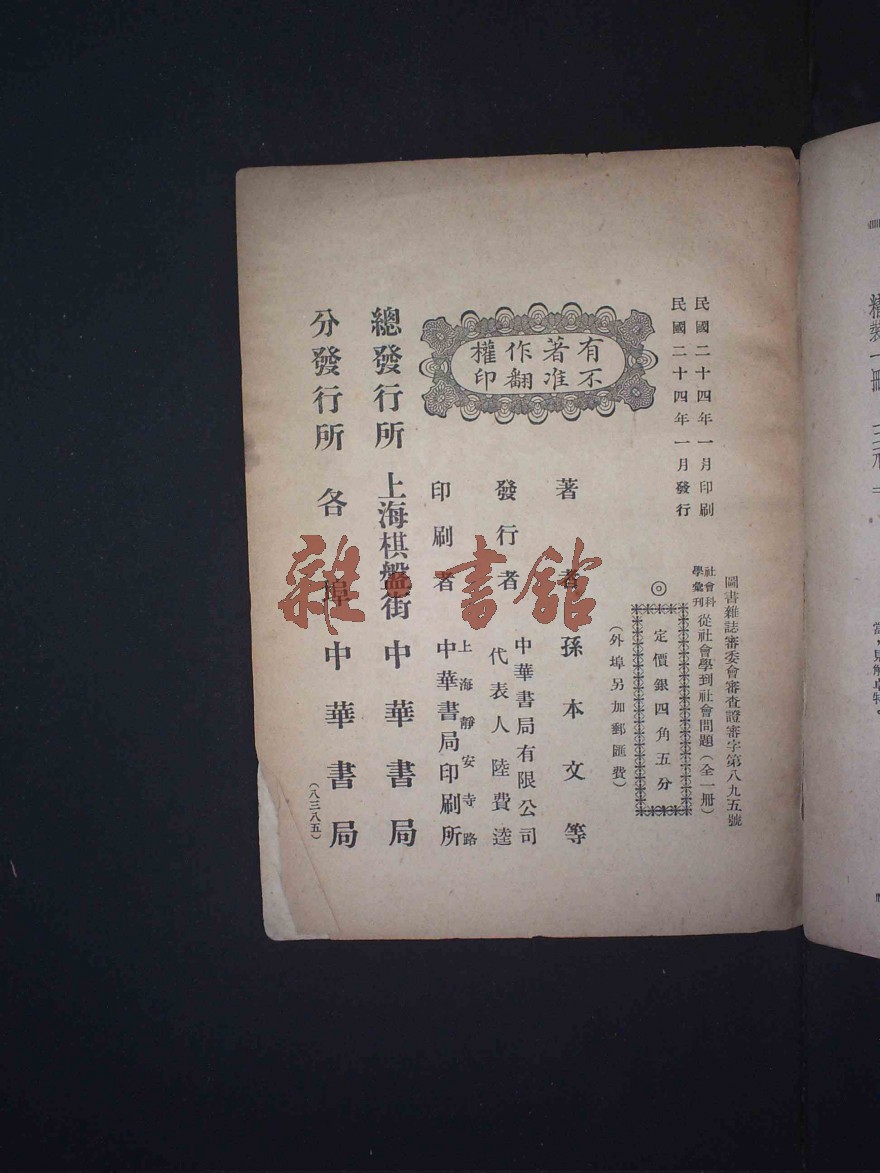 圖書雜誌審委會審查證審字第八九五號
民國二十四年一月印刷
民國二十四年一月發行
社會科學彙刊 從社會學到社會問題(全一冊)
◎定價銀四角五分
(外埠另加郵匯費)
有著作權
不准翻印
著者 孫本文等
發行者 中華書局有限公司
代表人 陸費逵
印刷者 上海靜安寺路
中華書局印刷所
總發行所 上海棋盤街 中華書局
分發行所 各埠 中華書局
(八三八五)
雜·書館
精裝一冊
當,見解卓特。